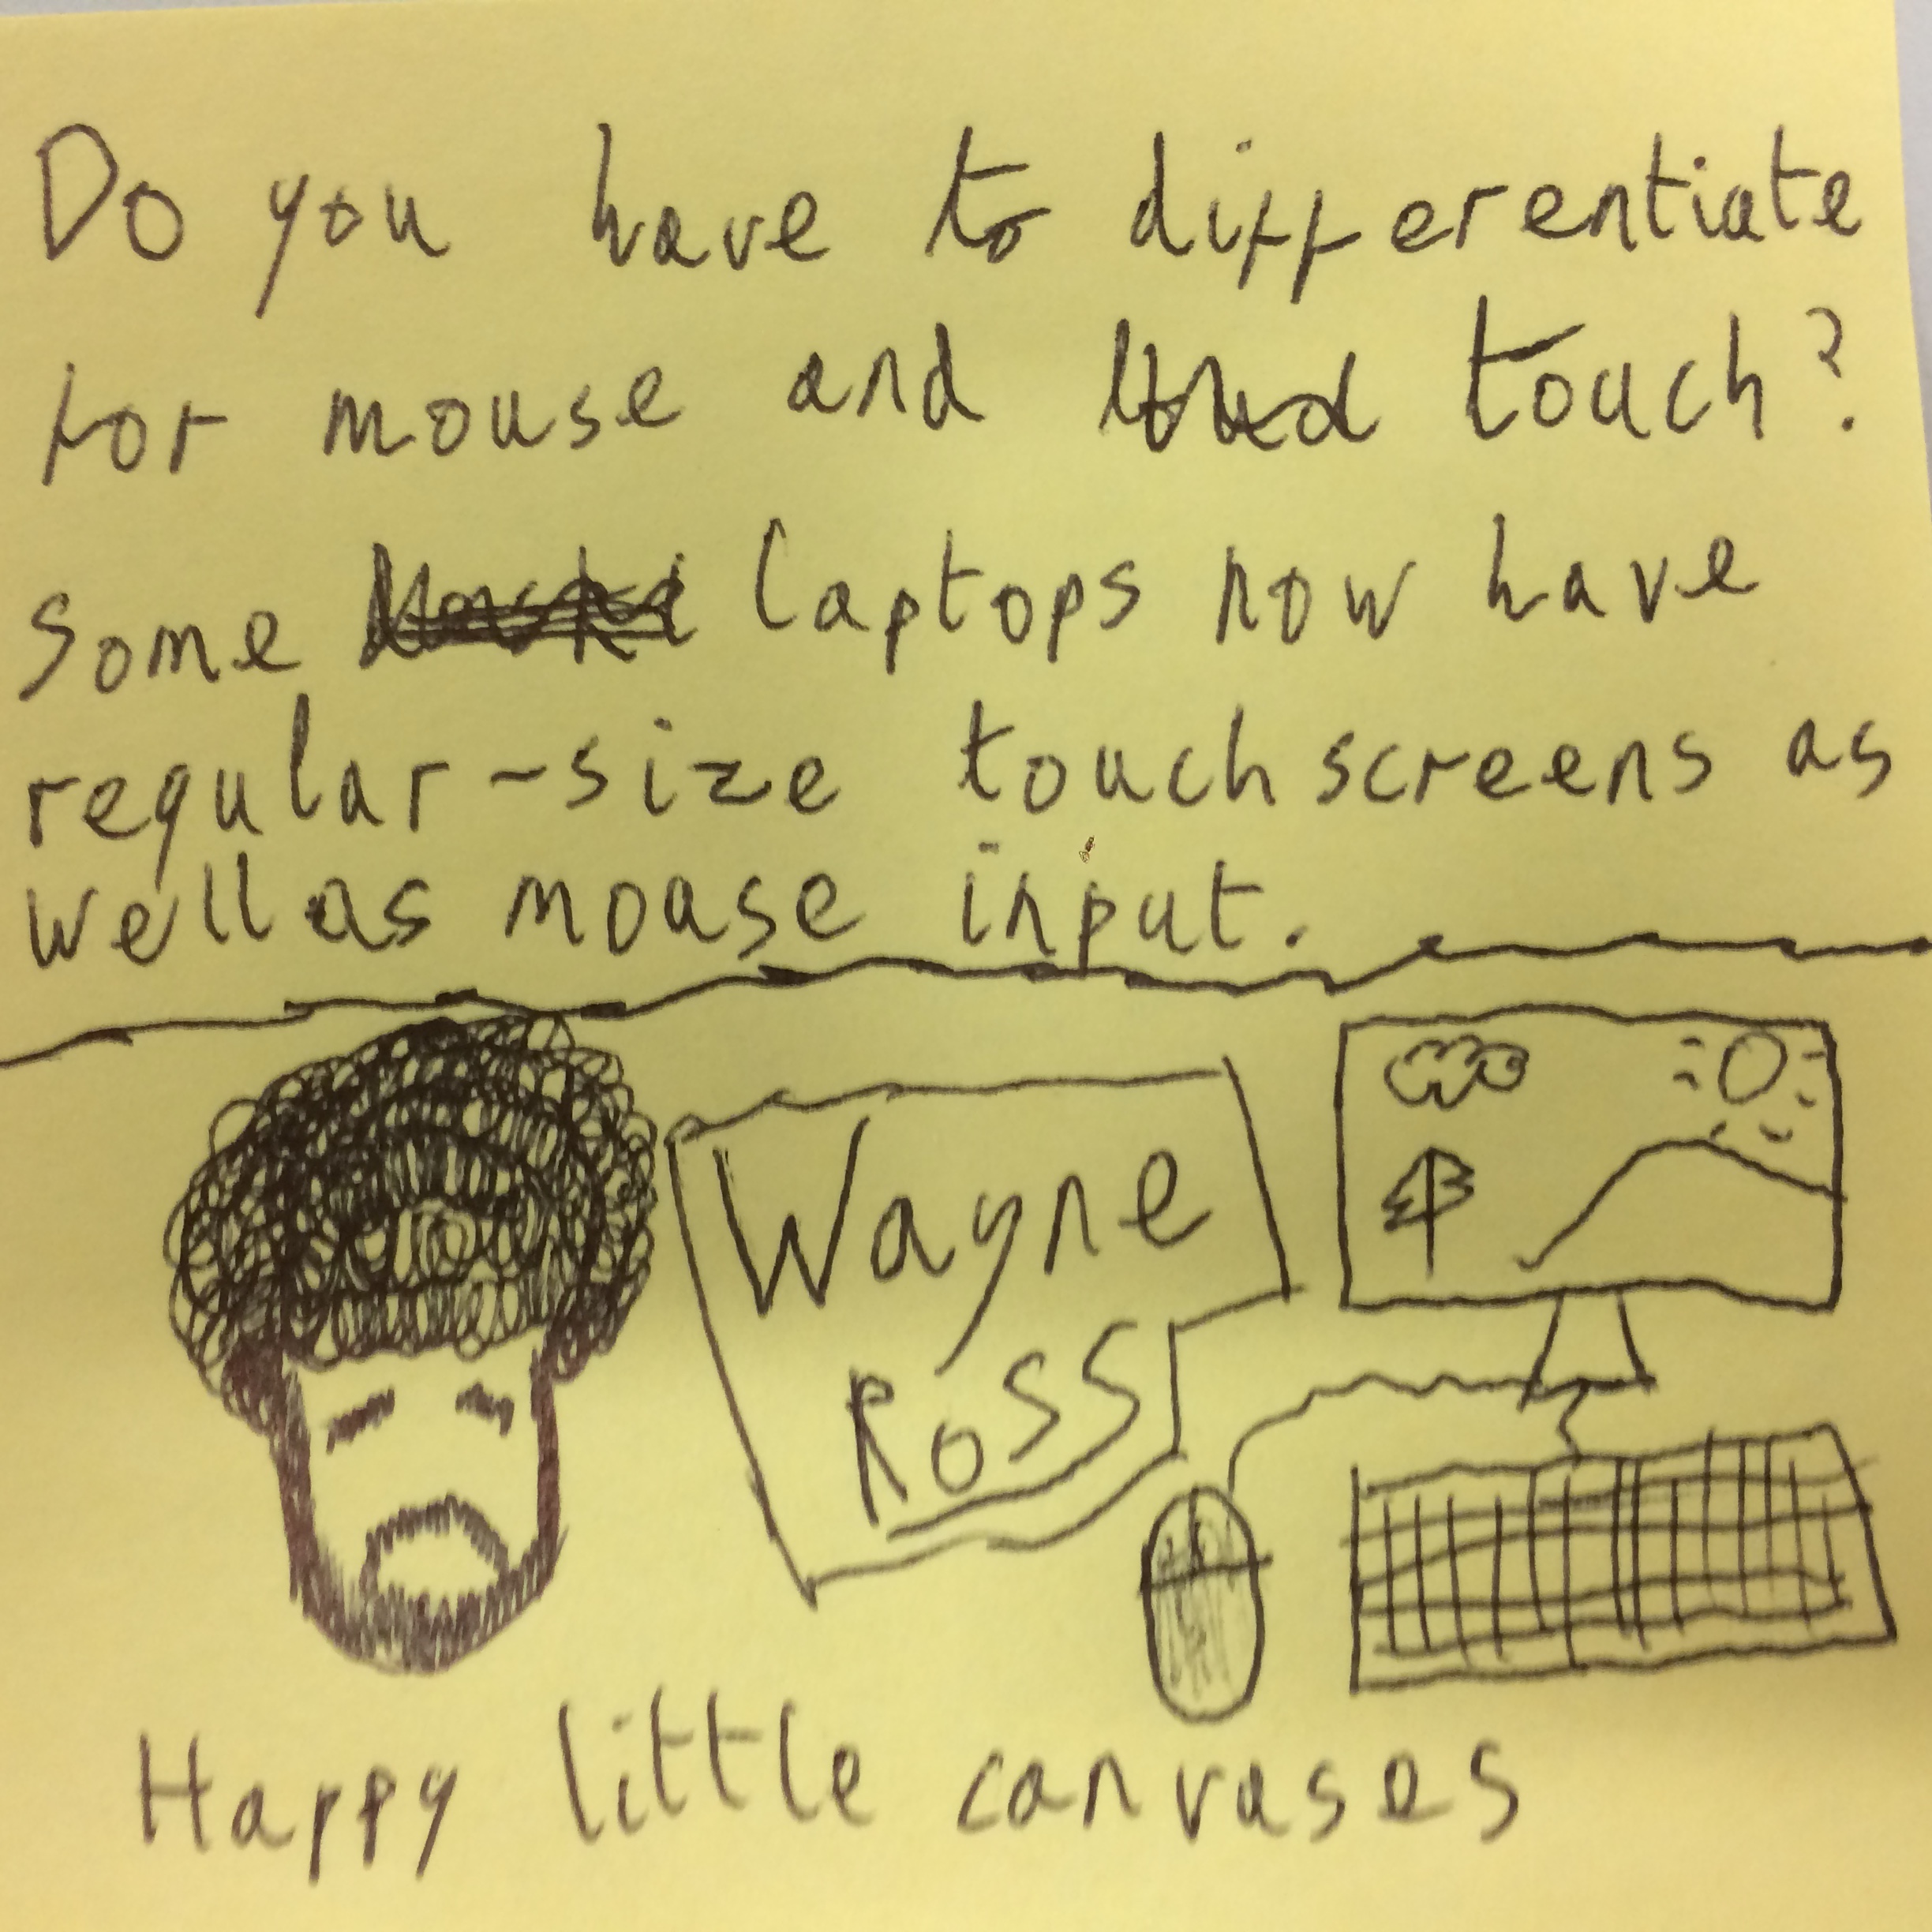 Do you have to differentiate
for mouse and touch?
Some laptops now have
regular-size touchscreens as
well as mouse input.
Wayne
Ross
Happy little canvases